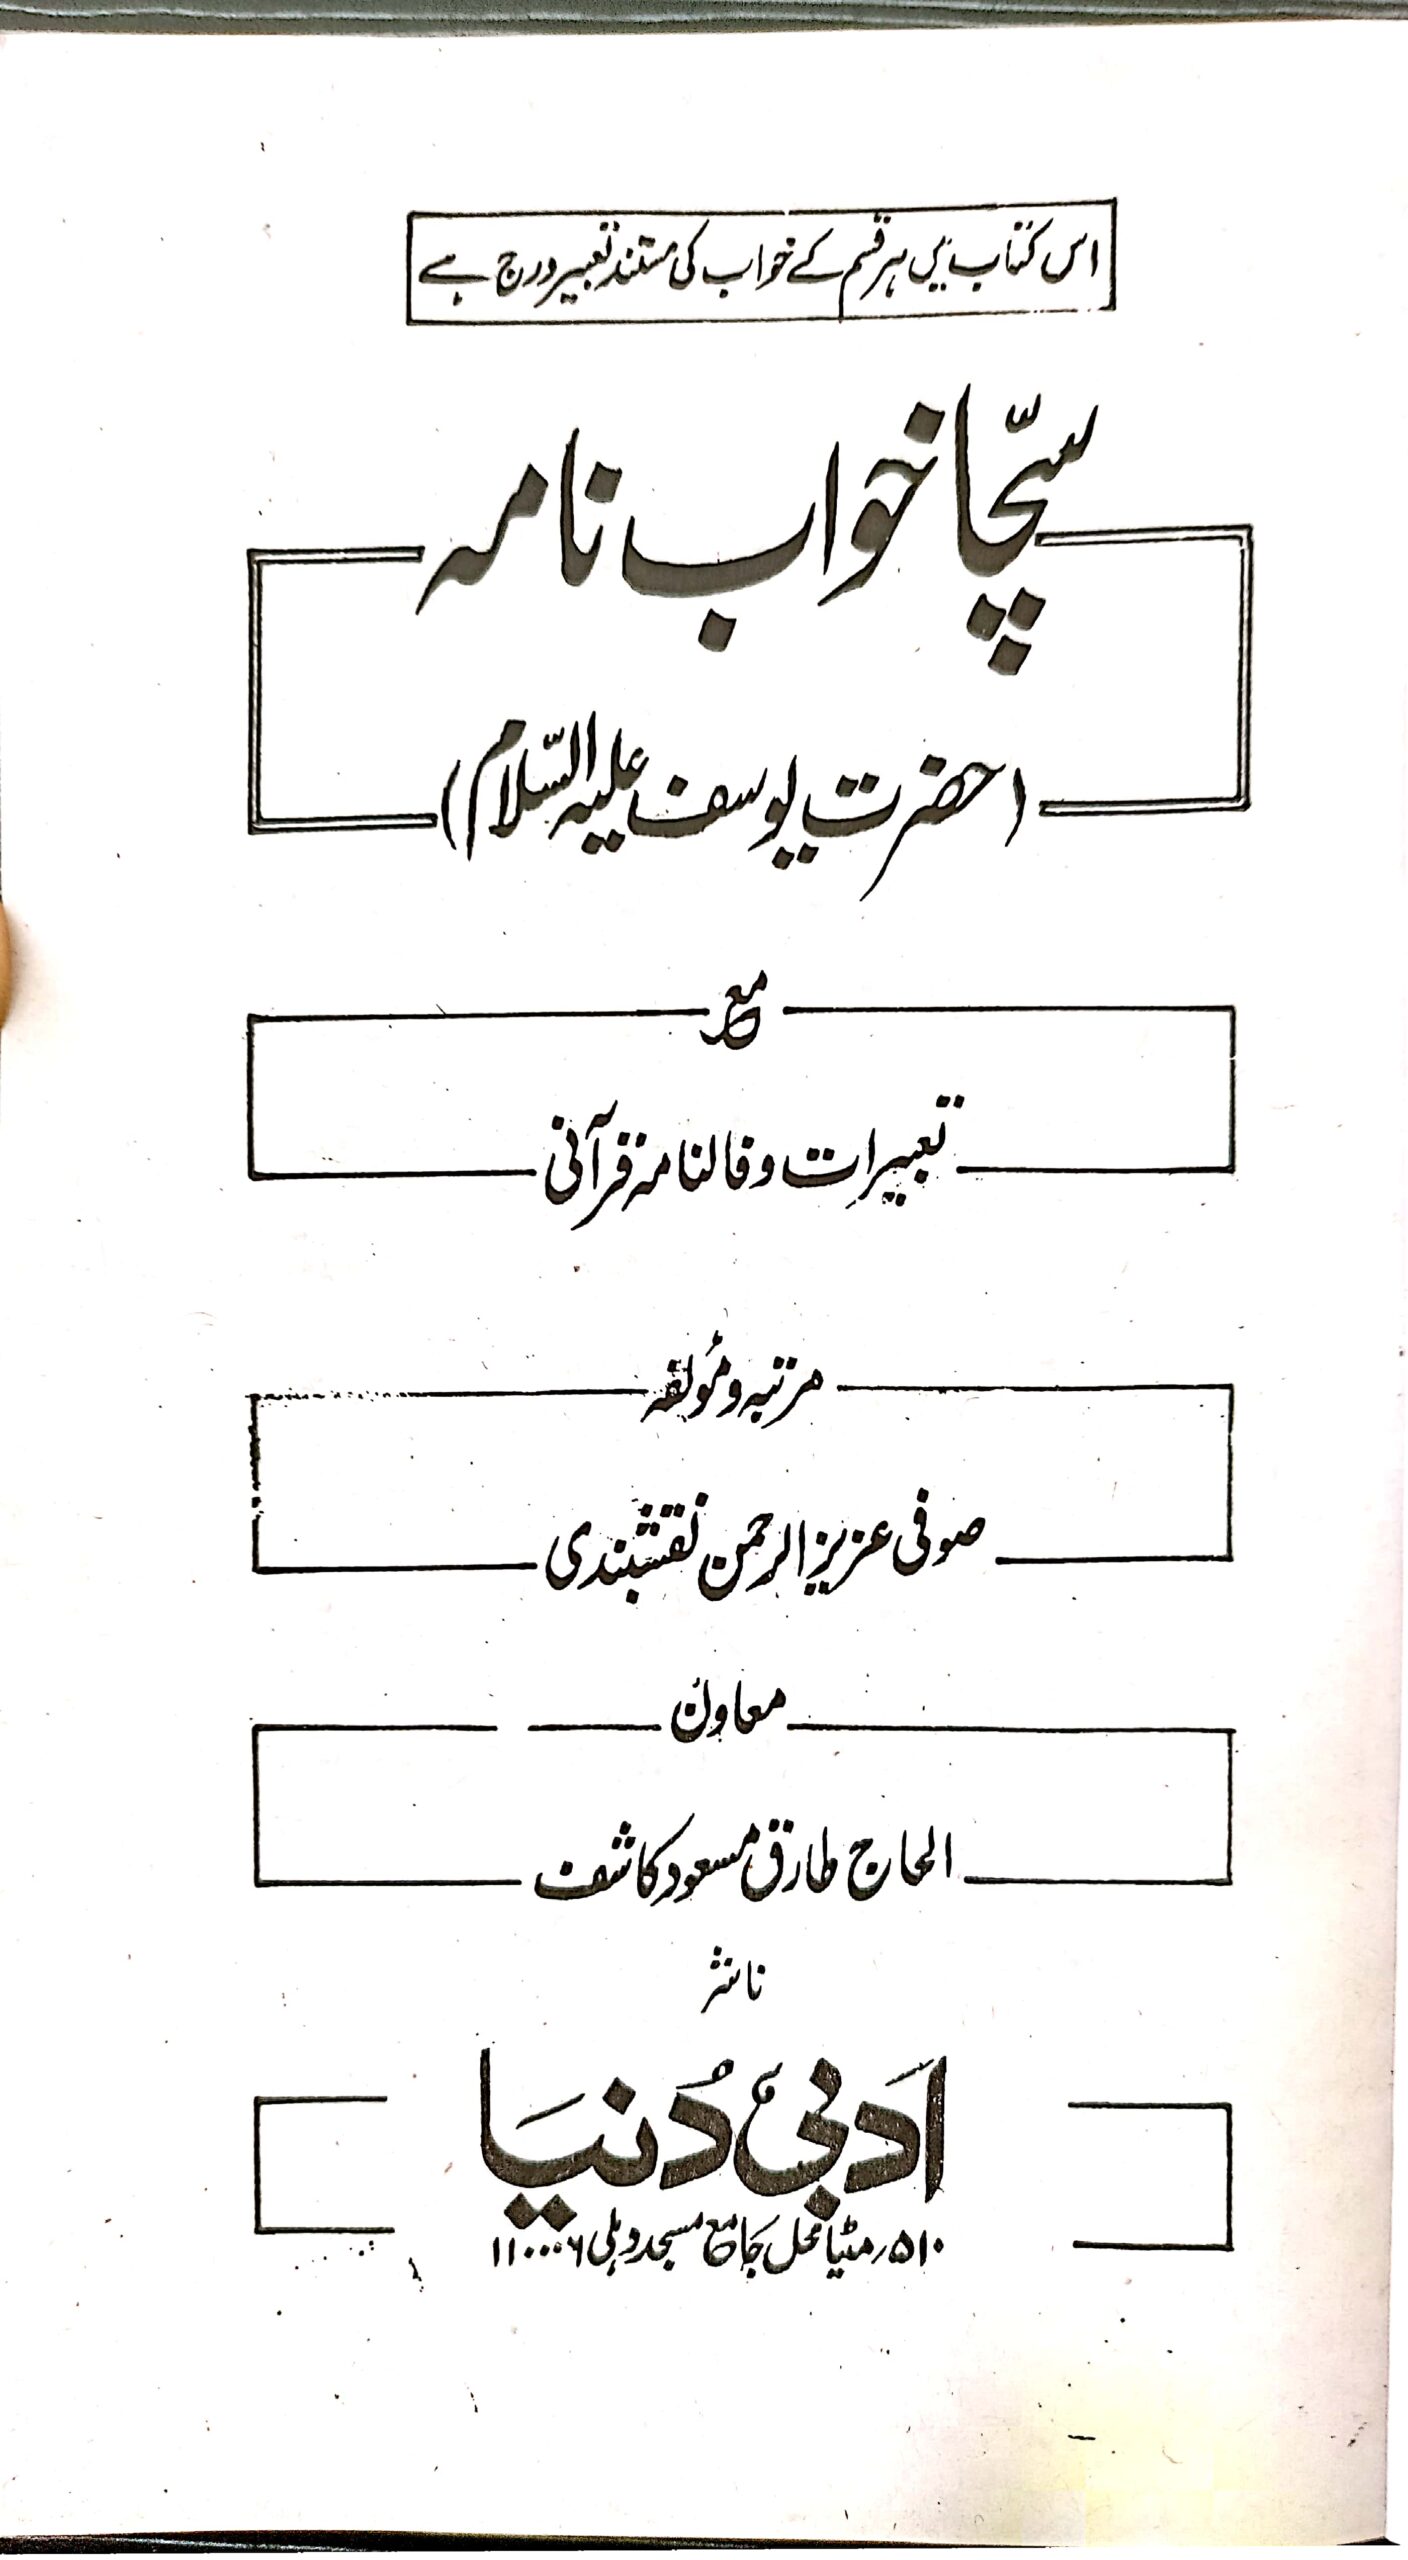 اس کتاب میں ہر قسم کے خواب کی مستند تعبیر درج ہے
سچّا خواب نامہ
(حضرت یوسف علیہ السّلام)
مع
تعبیرات و فالنامہ قرآنی
مرتبہ و مُولفہ
صوفی عزیز الرحمن نقشبندی
معاون
الحاج طارق مسعود کاشف
ناشر
اَدبیٔ دُنیَا
۵۱۰؍ مٹیا محل جامع مسجد دہلی ۱۱۰۰۰۶